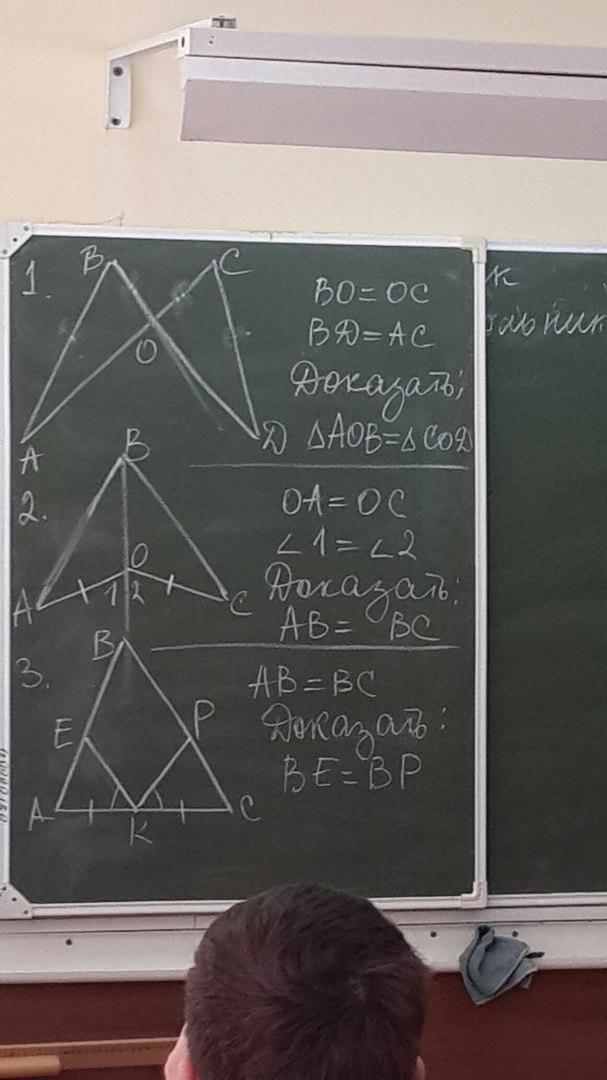 1.
B
C
O
A
D
BO = OC
BD = AC
Доказать:
△AOB = △COD
2.
B
O
1 2
A
C
OA = OC
∠1 = ∠2
Доказать:
AB = BC
3.
B
E
P
A
K
C
AB = BC
Доказать:
BE = BP
к